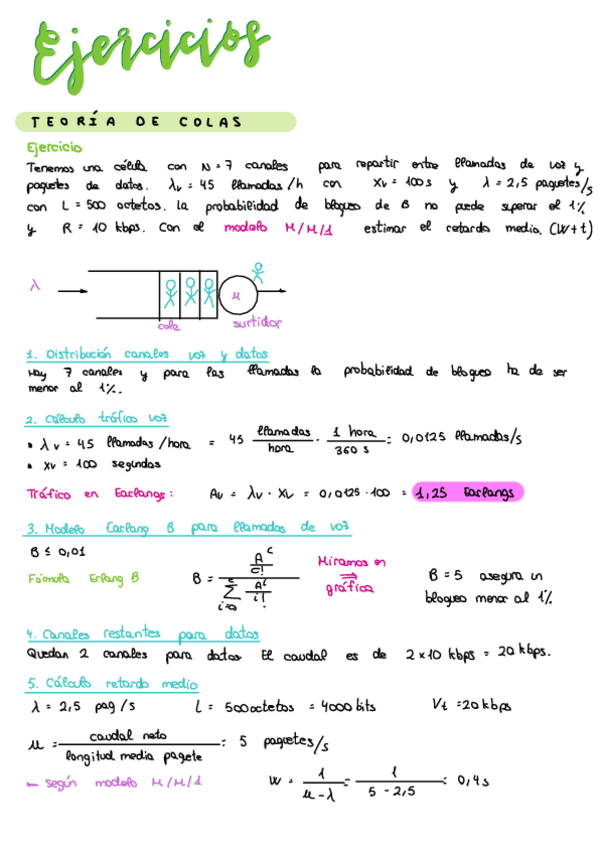 Ejercicios
TEORÍA DE COLAS
Ejercicio
Tenemos una célula con N = 7 canales para repartir entre llamadas de voz y
paquetes de datos. λv = 45 llamadas/h con Xv = 100s y λ = 2,5 paquetes/s
con L = 500 octetos. La probabilidad de bloqueo de B no puede superar el 1%
y R = 10 kbps. Con el modelo M/M/1 estimar el retardo medio. (W+t)
λ
μ
cola
surtidor
1. Distribución canales voz y datos
Hay 7 canales y para las llamadas la probabilidad de bloqueo ha de ser
menor al 1%.
2. Cálculo tráfico voz
• λv = 45 llamadas/hora = 45 llamadas/hora · 1 hora/360 s = 0,0125 llamadas/s
• Xv = 100 segundos
Tráfico en Earlangs: Av = λv · Xv = 0,0125·100 = 1,25 Earlangs
3. Modelo Earlang B para llamadas de voz
B ≤ 0,01
Fórmula Erlang B B = (A^c/c!)/(Σ_{i=0}^{c} A^i/i!) Miramos en ⇒ gráfica B = 5 asegura un
bloqueo menor al 1%
4. Canales restantes para datos
Quedan 2 canales para datos El caudal es de 2×10 kbps = 20 kbps.
5. Cálculo retardo medio
λ = 2,5 paq/s L = 500 octetos = 4000 bits Vt = 20 kbps
μ = caudal neto/longitud media paquete = 5 paquetes/s
– según modelo M/M/1 W = 1/(μ-λ) = 1/(5-2,5) = 0,4s